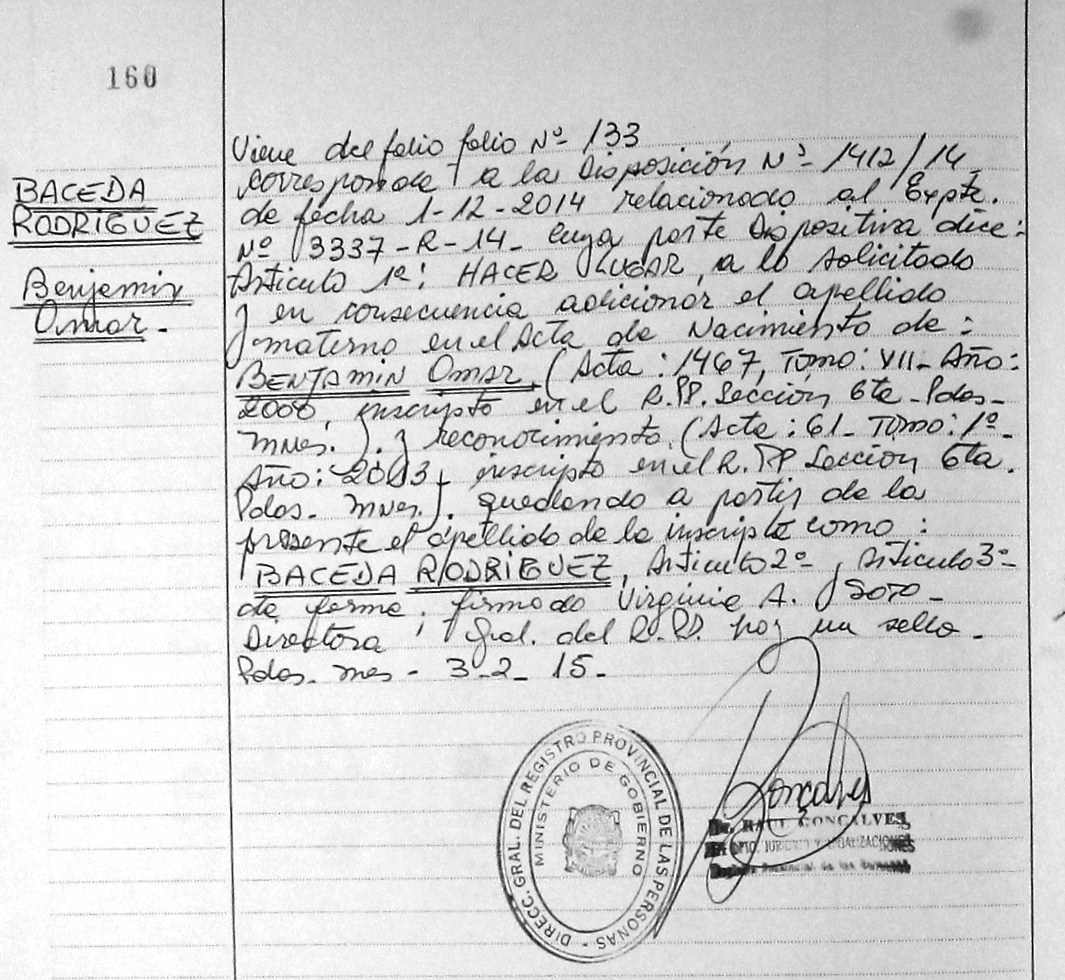 160
BACEDA
RODRIGUEZ
Benjemin
Omar.-
Viene del folio folio Nº 133
corresponde a la Disposición Nº 1412/14,
de fecha 1-12-2014 relacionado al Expte.
Nº 3337-R-14- cuya parte Dispositiva dice:
Articulo 1º: HACER LUGAR, a lo solicitado
y en consecuencia adicionar el apellido
materno en el Acta de Nacimiento de:
BENJAMIN Omar, (Acta: 1467, Tomo: VII- Año:
inscripto en el R.PP. Sección 6ta-Pdas-
Mnes.). y reconocimiento, (Acta: 61- Tomo: 1º-
Año: 2003, inscripto en el R.PP Seccion 6ta.
Pdas- Mnes). quedando a partir de la
presente el apellido de la inscripta como:
BACEDA RODRIGUEZ, Articulo 2º, Articulo 3º-
de forma. firmado Virginia A. Soto-
Directora Gral. del R.PP. hay un sello-
Pdas- Mnes- 3-2-15-
DIRECC. GRAL. DEL REGISTRO PROVINCIAL DE LAS PERSONAS -
MINISTERIO DE GOBIERNO
Gonçalves
Dr. RAUL GONÇALVES
JURIDICO Y LEGALIZACIONES
Registro Provincial de las Personas